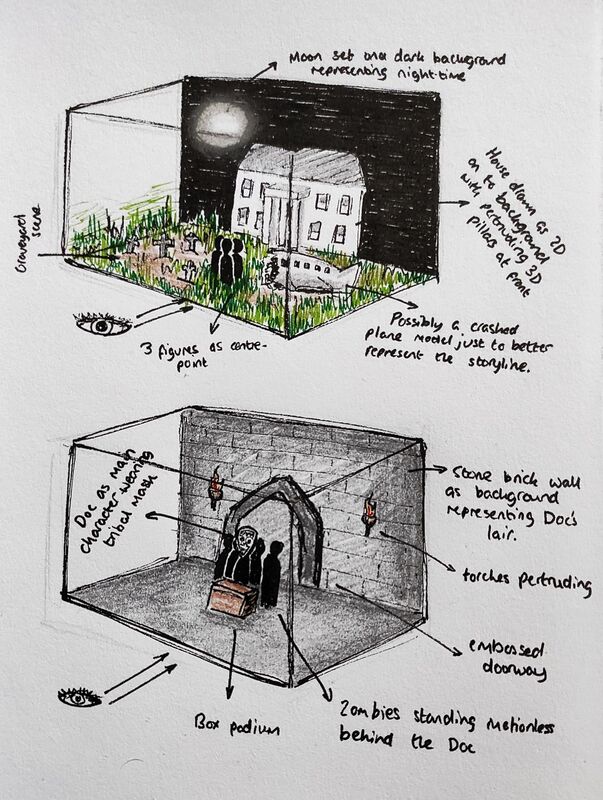 Moon set on a dark background
representing night-time
Graveyard
scene
House drawn as 2D
on to background
with pertruding 3D
pillars at front
3 figures as centre-
point
Possibly a crashed
plane model just to better
represent the storyline.
Doc as main
character wearing
tribal mask
Stone brick wall
as background
representing Doc's
lair.
torches pertruding
embossed
doorway
Box podium
Zombies standing motionless
behind the Doc